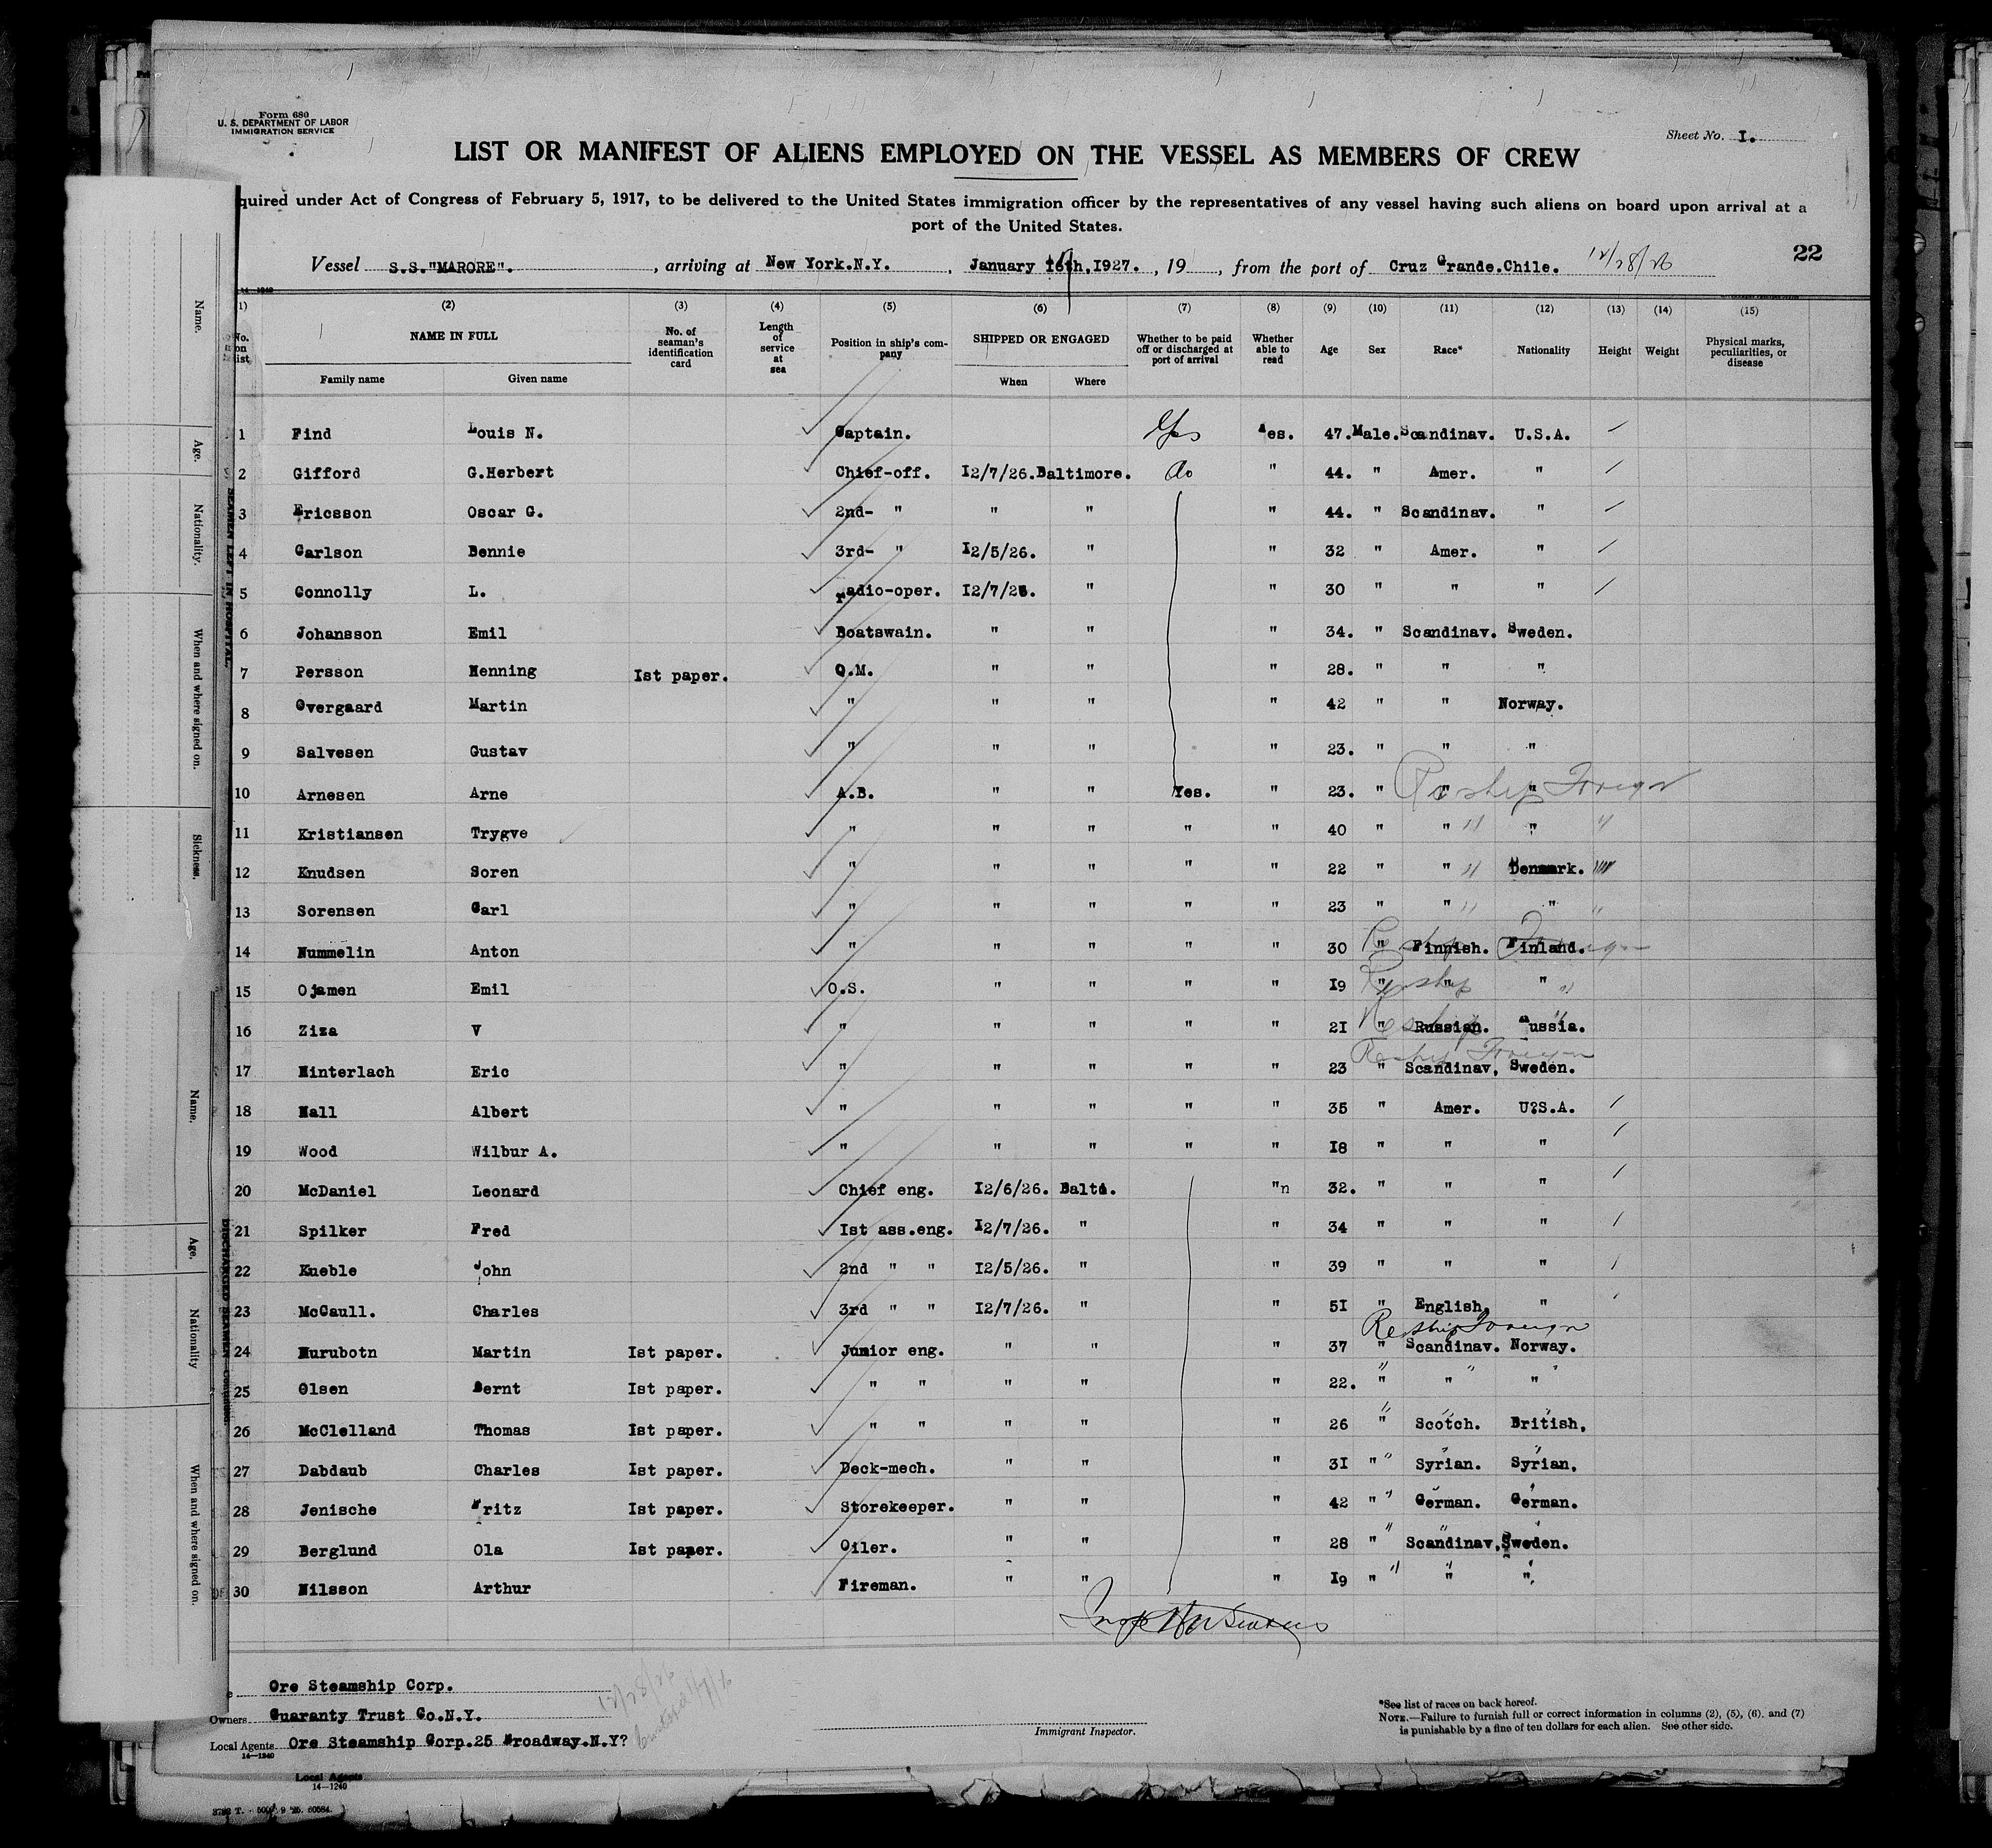 Form 680
U. S. DEPARTMENT OF LABOR
IMMIGRATION SERVICE
Sheet No. I.
LIST OR MANIFEST OF ALIENS EMPLOYED ON THE VESSEL AS MEMBERS OF CREW
quired under Act of Congress of February 5, 1917, to be delivered to the United States immigration officer by the representatives of any vessel having such aliens on board upon arrival at a
port of the United States.
22
Vessel S.S."MARORE". , arriving at New York.N.Y. , January 16th,1927. , 19 , from the port of Cruz Grande.Chile. 12/28/26
1) (2) (3) (4) (5) (6) (7) (8) (9) (10) (11) (12) (13) (14) (15)
No. on list NAME IN FULL Family name Given name No. of seaman's identification card Length of service at sea Position in ship's company SHIPPED OR ENGAGED When Where Whether to be paid off or discharged at port of arrival Whether able to read Age Sex Race* Nationality Height Weight Physical marks, peculiarities, or disease
1 Find Louis N. Captain. Yes Yes. 47. Male. Scandinav. U.S.A.
2 Gifford G.Herbert Chief-off. I2/7/26. Baltimore. do " 44. " Amer. "
3 Ericsson Oscar G. 2nd- " " " " 44. " Scandinav. "
4 Carlson Bennie 3rd- " I2/5/26. " " 32 " Amer. "
5 Connolly L. radio-oper. I2/7/26. " " 30 " " "
6 Johansson Emil Boatswain. " " " 34. " Scandinav. Sweden.
7 Persson Henning Ist paper. Q.M. " " " 28. " " "
8 Overgaard Martin " " " " 42 " " Norway.
9 Salvesen Gustav " " " " 23. " " "
10 Arnesen Arne A.B. " " Yes. " 23. " " " Reship Foreign
11 Kristiansen Trygve " " " " " 40 " " " " "
12 Knudsen Soren " " " " " 22 " " " Denmark. "
13 Sorensen Carl " " " " " 23 " " " " "
14 Nummelin Anton " " " " " 30 " Finnish. Finland. Reship Foreign
15 Ojamen Emil O.S. " " " " I9 " " " Reship "
16 Ziza V " " " " " 2I " Russian. Russia. Reship "
17 Hinterlach Eric " " " " " 23 " Scandinav, Sweden. Reship Foreign
18 Hall Albert " " " " " 35 " Amer. U?S.A.
19 Wood Wilbur A. " " " " " I8 " " "
20 McDaniel Leonard Chief eng. I2/6/26. Balto. "n 32. " " "
21 Spilker Fred Ist ass.eng. I2/7/26. " " 34 " " "
22 Kueble John 2nd " " I2/5/26. " " 39 " " "
23 McCaull. Charles 3rd " " I2/7/26. " " 5I " English, "
24 Hurubotn Martin Ist paper. Junior eng. " " " 37 " Scandinav. Norway. Reship Foreign
25 Olsen Bernt Ist paper. " " " " " 22. " " "
26 McClelland Thomas Ist paper. " " " " " 26 " Scotch. British,
27 Dabdaub Charles Ist paper. Deck-mech. " " " 3I " Syrian. Syrian,
28 Jenische Fritz Ist paper. Storekeeper. " " " 42 " German. German.
29 Berglund Ola Ist paper. Oiler. " " " 28 " Scandinav, Sweden.
30 Nilsson Arthur Fireman. " " " I9 " " "
Ore Steamship Corp.
Owners Guaranty Trust Co.N.Y.
Local Agents Ore Steamship Corp.25 Broadway.N.Y?
14—1240
12/28/26
Immigrant Inspector.
*See list of races on back hereof.
NOTE.—Failure to furnish full or correct information in columns (2), (5), (6), and (7)
is punishable by a fine of ten dollars for each alien. See other side.
Local Agents
14—1240
Name.
Age.
Nationality.
When and where signed on.
Sickness.
SEAMEN LEFT IN HOSPITAL.
Name.
Age.
Nationality
When and where signed on.
DISCHARGED SEAMEN—Continued.